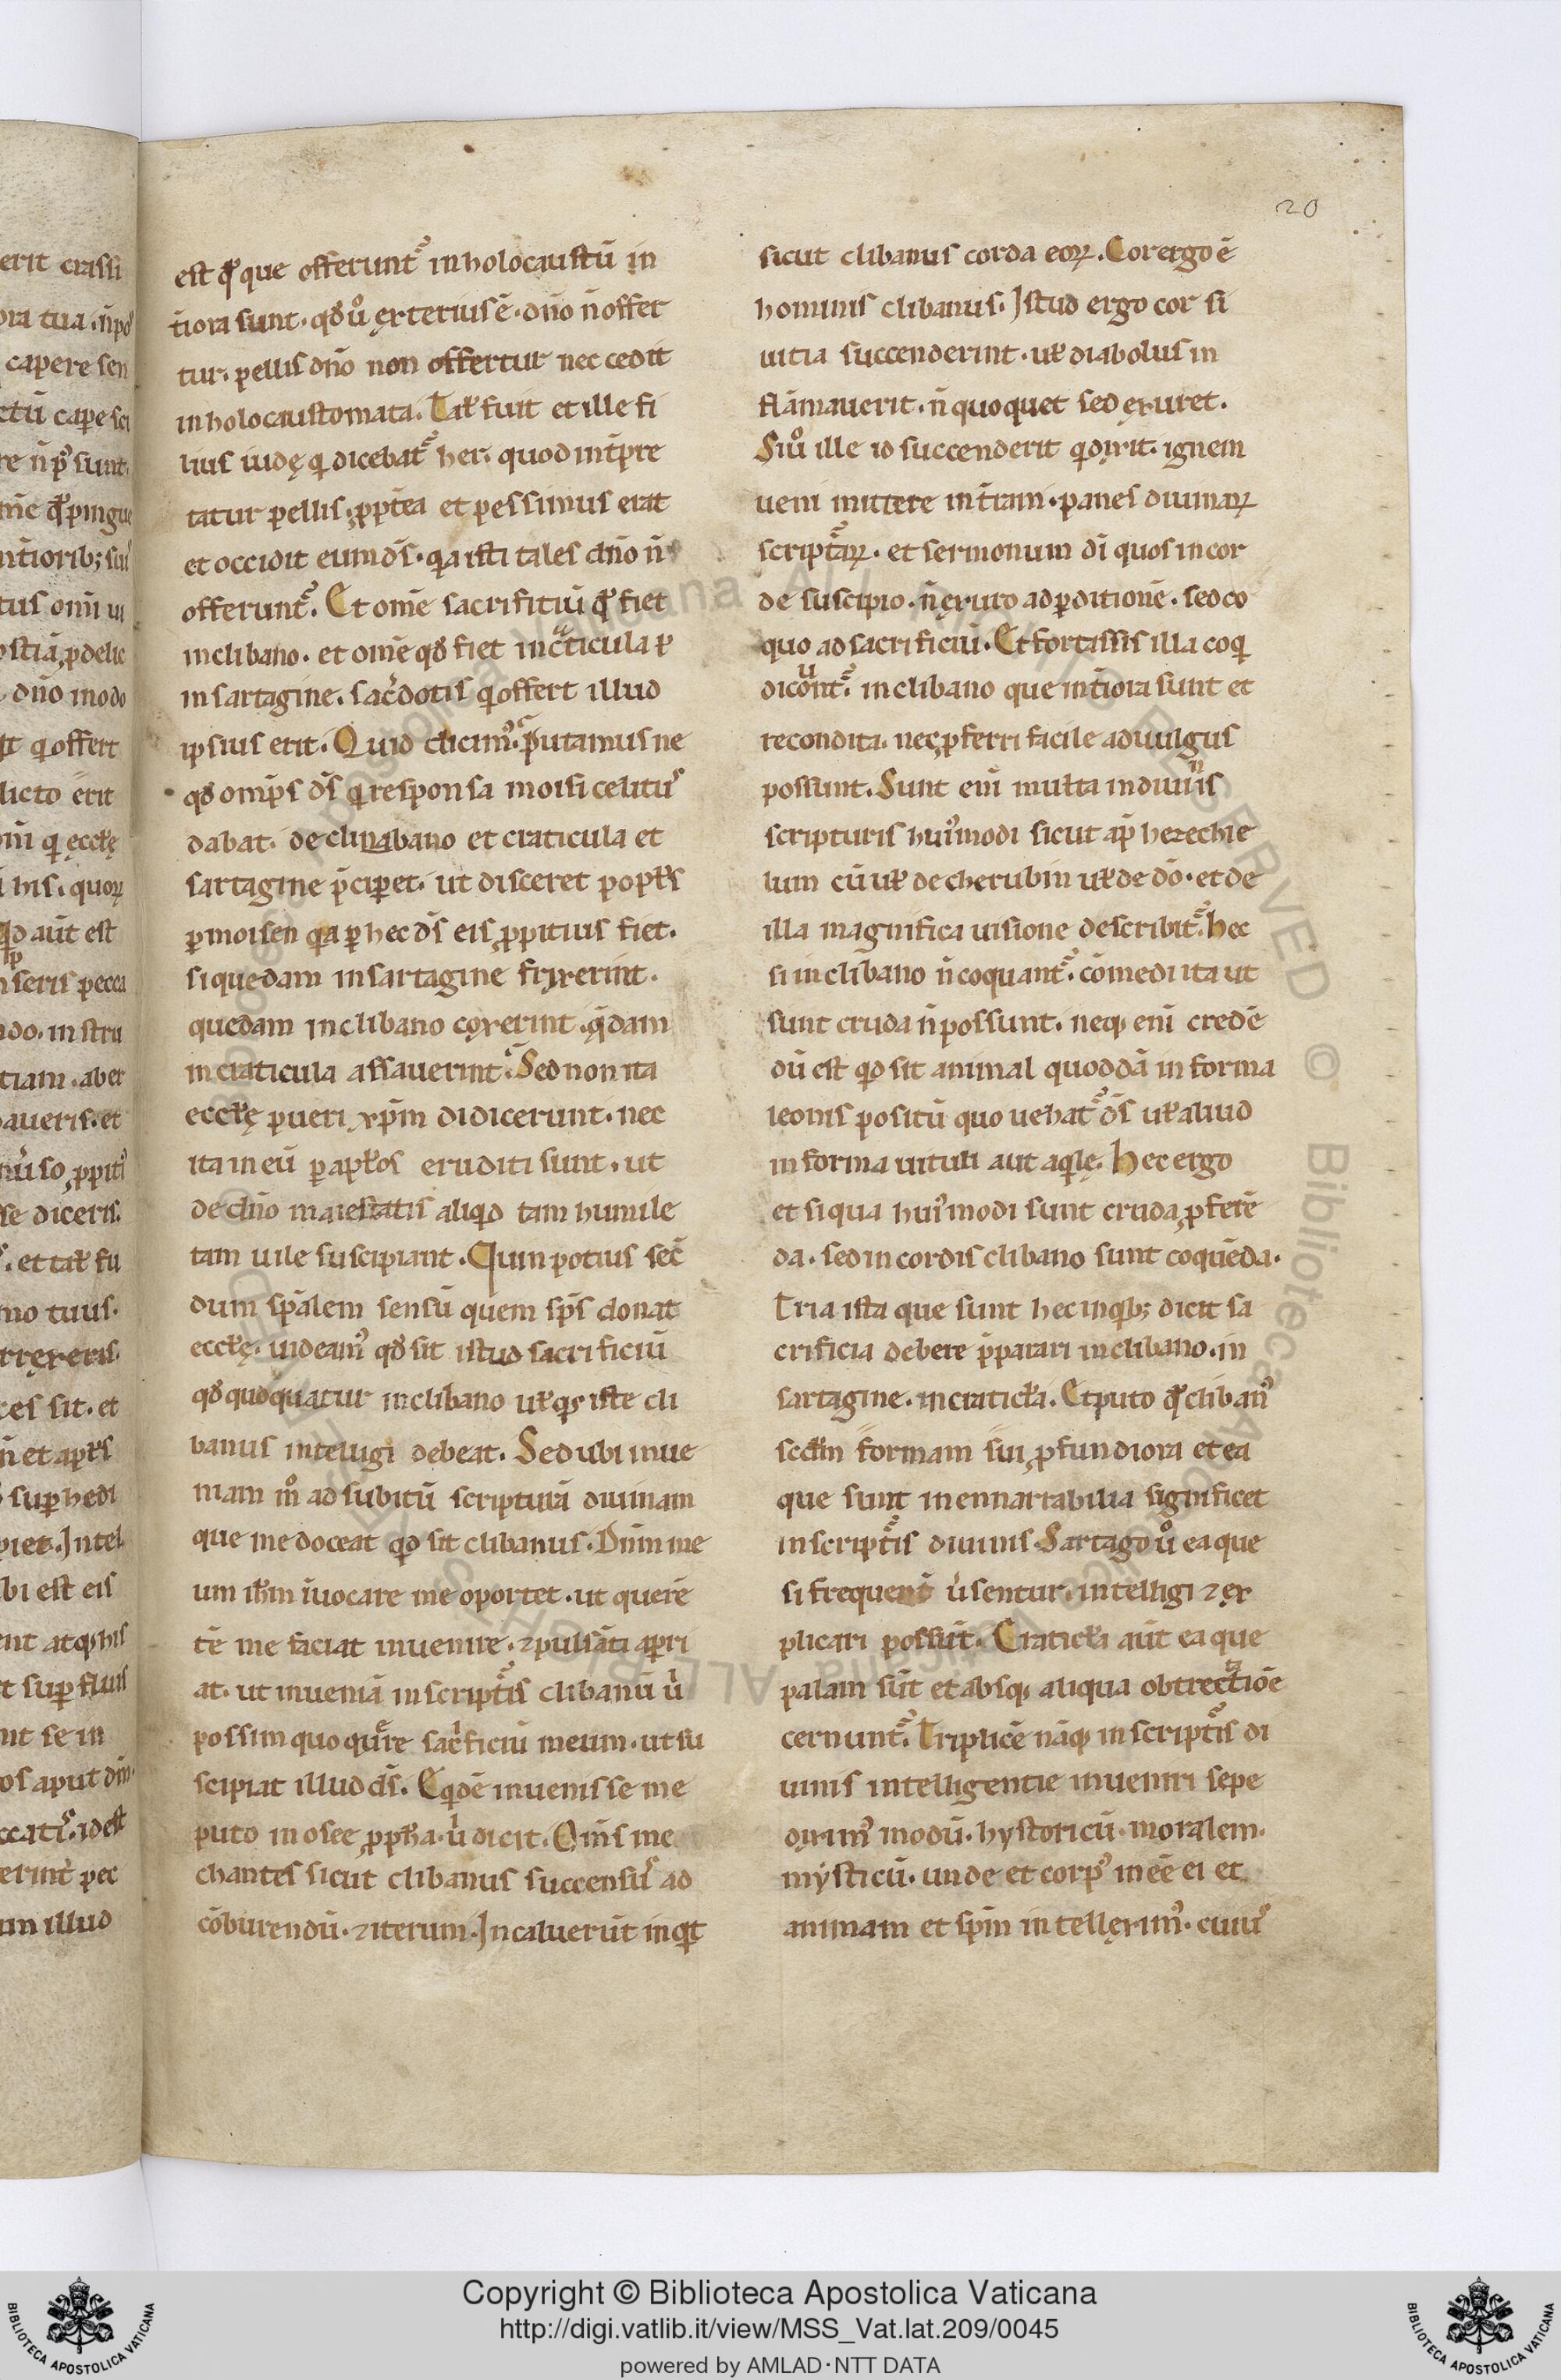 20
est qđ que offerunt᷑ inholocaustū in
t̄iora sunt. qđ ů ęxterius ē. dño n̄ offer
tur. pellis dño non offertur nec cedit
in holocaustomata. Tał fuit et ille fi
lius iudę q dicebat᷑ her. quod int̄pre
tatur pellis. ꝓpt̄ea et pessimus erat
et occidit eum dš. qa isti tales dño n̄
offerunt᷑. Et om̄e sacrifitiū qđ fiet
inclibano. et om̄e qđ fiet incᵃticula ł
in sartagine. sac̄dotis q offert illud
ipsius erit. Quid dicim᷒. putamus ne
qđ omp̄s dš q responsa moisi celitus
dabat. de clinabano et craticula et
sartagine p̄ciperet. ut disceret popłs
ꝑ moisen qa ꝑ hec dš eis ꝓpitius fiet.
si quedam insartagine frixerint.
quedam inclibano coxerint. q̄dam
incraticula assauerint. Sed non ita
eccłę pueri xp̄m didicerunt. nec
ita in eū ꝑ apłos eruditi sunt. ut
de dño maiestatis aliqd tam humile
tam uile suscipiant. Quin potius sec̄
dum sp̄alem sensū quem sp̄s donat
eccłę. uideam᷒ qđ sit istud sacrificiū
qđ quoquatur inclibano ułqs iste cli
banus intelligi debeat. Sed ubi inue
niam m̊ ad subitū scripturā diuinam
que me doceat qd sit clibanus. Dñm me
um ihm̄ īuocare me oportet. ut querē
tē me faciat inuenire. ⁊ pulsāti apri
at. ut inueniā inscript᷑is clibanū ů
possim quo qu̅re sac̄ficiū meum. ut su
scipiat illud dš. Eqdē inuenisse me
puto in osee ꝓph̄a. ů dicit. Om̄s me
chantes sicut clibanus succensus ad
cōburendū. ⁊ iterum. Incaluerūt inqt
sicut clibanus corda eoꝝ. Cor ergo ē
hominis clibanus. Istud ergo cor si
uitia succenderint. uł diabolus in
flāmauerit. n̄ quoquet sed ęxuret.
Si ů ille id succenderit q dix̣it. ignem
ueni mittere in t̄ram. panes diuinaꝝ
script᷑aꝝ. et sermonum dī quos in cor
de suscipio. n̄ ęxuro ad ꝑditionē. sed co
quo ad sacrificiū. Et fortassis illa coq
diconᵘt᷑. inclibano que int̄iora sunt et
recondita. nec ꝓferri facile ad uulgus
possunt. Sunt enī multa in diuiⁿis
scripturis hui᷒modi sicut ap̄ hezechie
lum cū uł de cherubin uł de dō. et de
illa magnifica uisione describit᷑. hec
si inclibano n̄ coquant᷑. cōmedi ita ut
sunt cruda n̄ possunt. neqꝫ enī credē
dū est qd sit animal quoddā in forma
leonis positū quo uehat᷑ dš uł aliud
in forma uituli aut aqlę. Hec ergo
et si qua hui᷒modi sunt cruda ꝓferē
da. sed in cordis clibano sunt coquēda.
Tria ista que sunt hec in qbꝫ dicit sa
crificia debere p̄parari inclibano. in
sartagine. incraticła. Et puto qđ cliban᷒
scđm formam sui ꝓfundiora et ea
que sunt inennarrabilia significet
in script᷑is diuinis. Sartago ů ea que
si frequent᷑ ůsentur. intelligi ⁊ ex
plicari possūt. Craticła aūt ea que
palam sūt et absqꝫ aliqua obtrectᵃtiōe
cernunt᷑. Triplicē nāqꝫ in script᷑is di
uinis intelligentie inueniri sepe
dixim᷒ modū. hystoricū. moralem.
mysticū. unde et corp᷒ in eē ei et
animam et sp̄m intellęxim᷒. cuius
Copyright © Biblioteca Apostolica Vaticana
http://digi.vatlib.it/view/MSS_Vat.lat.209/0045
powered by AMLAD·NTT DATA
BIBLIOTECA APOSTOLICA VATICANA
BIBLIOTECA APOSTOLICA VATICANA